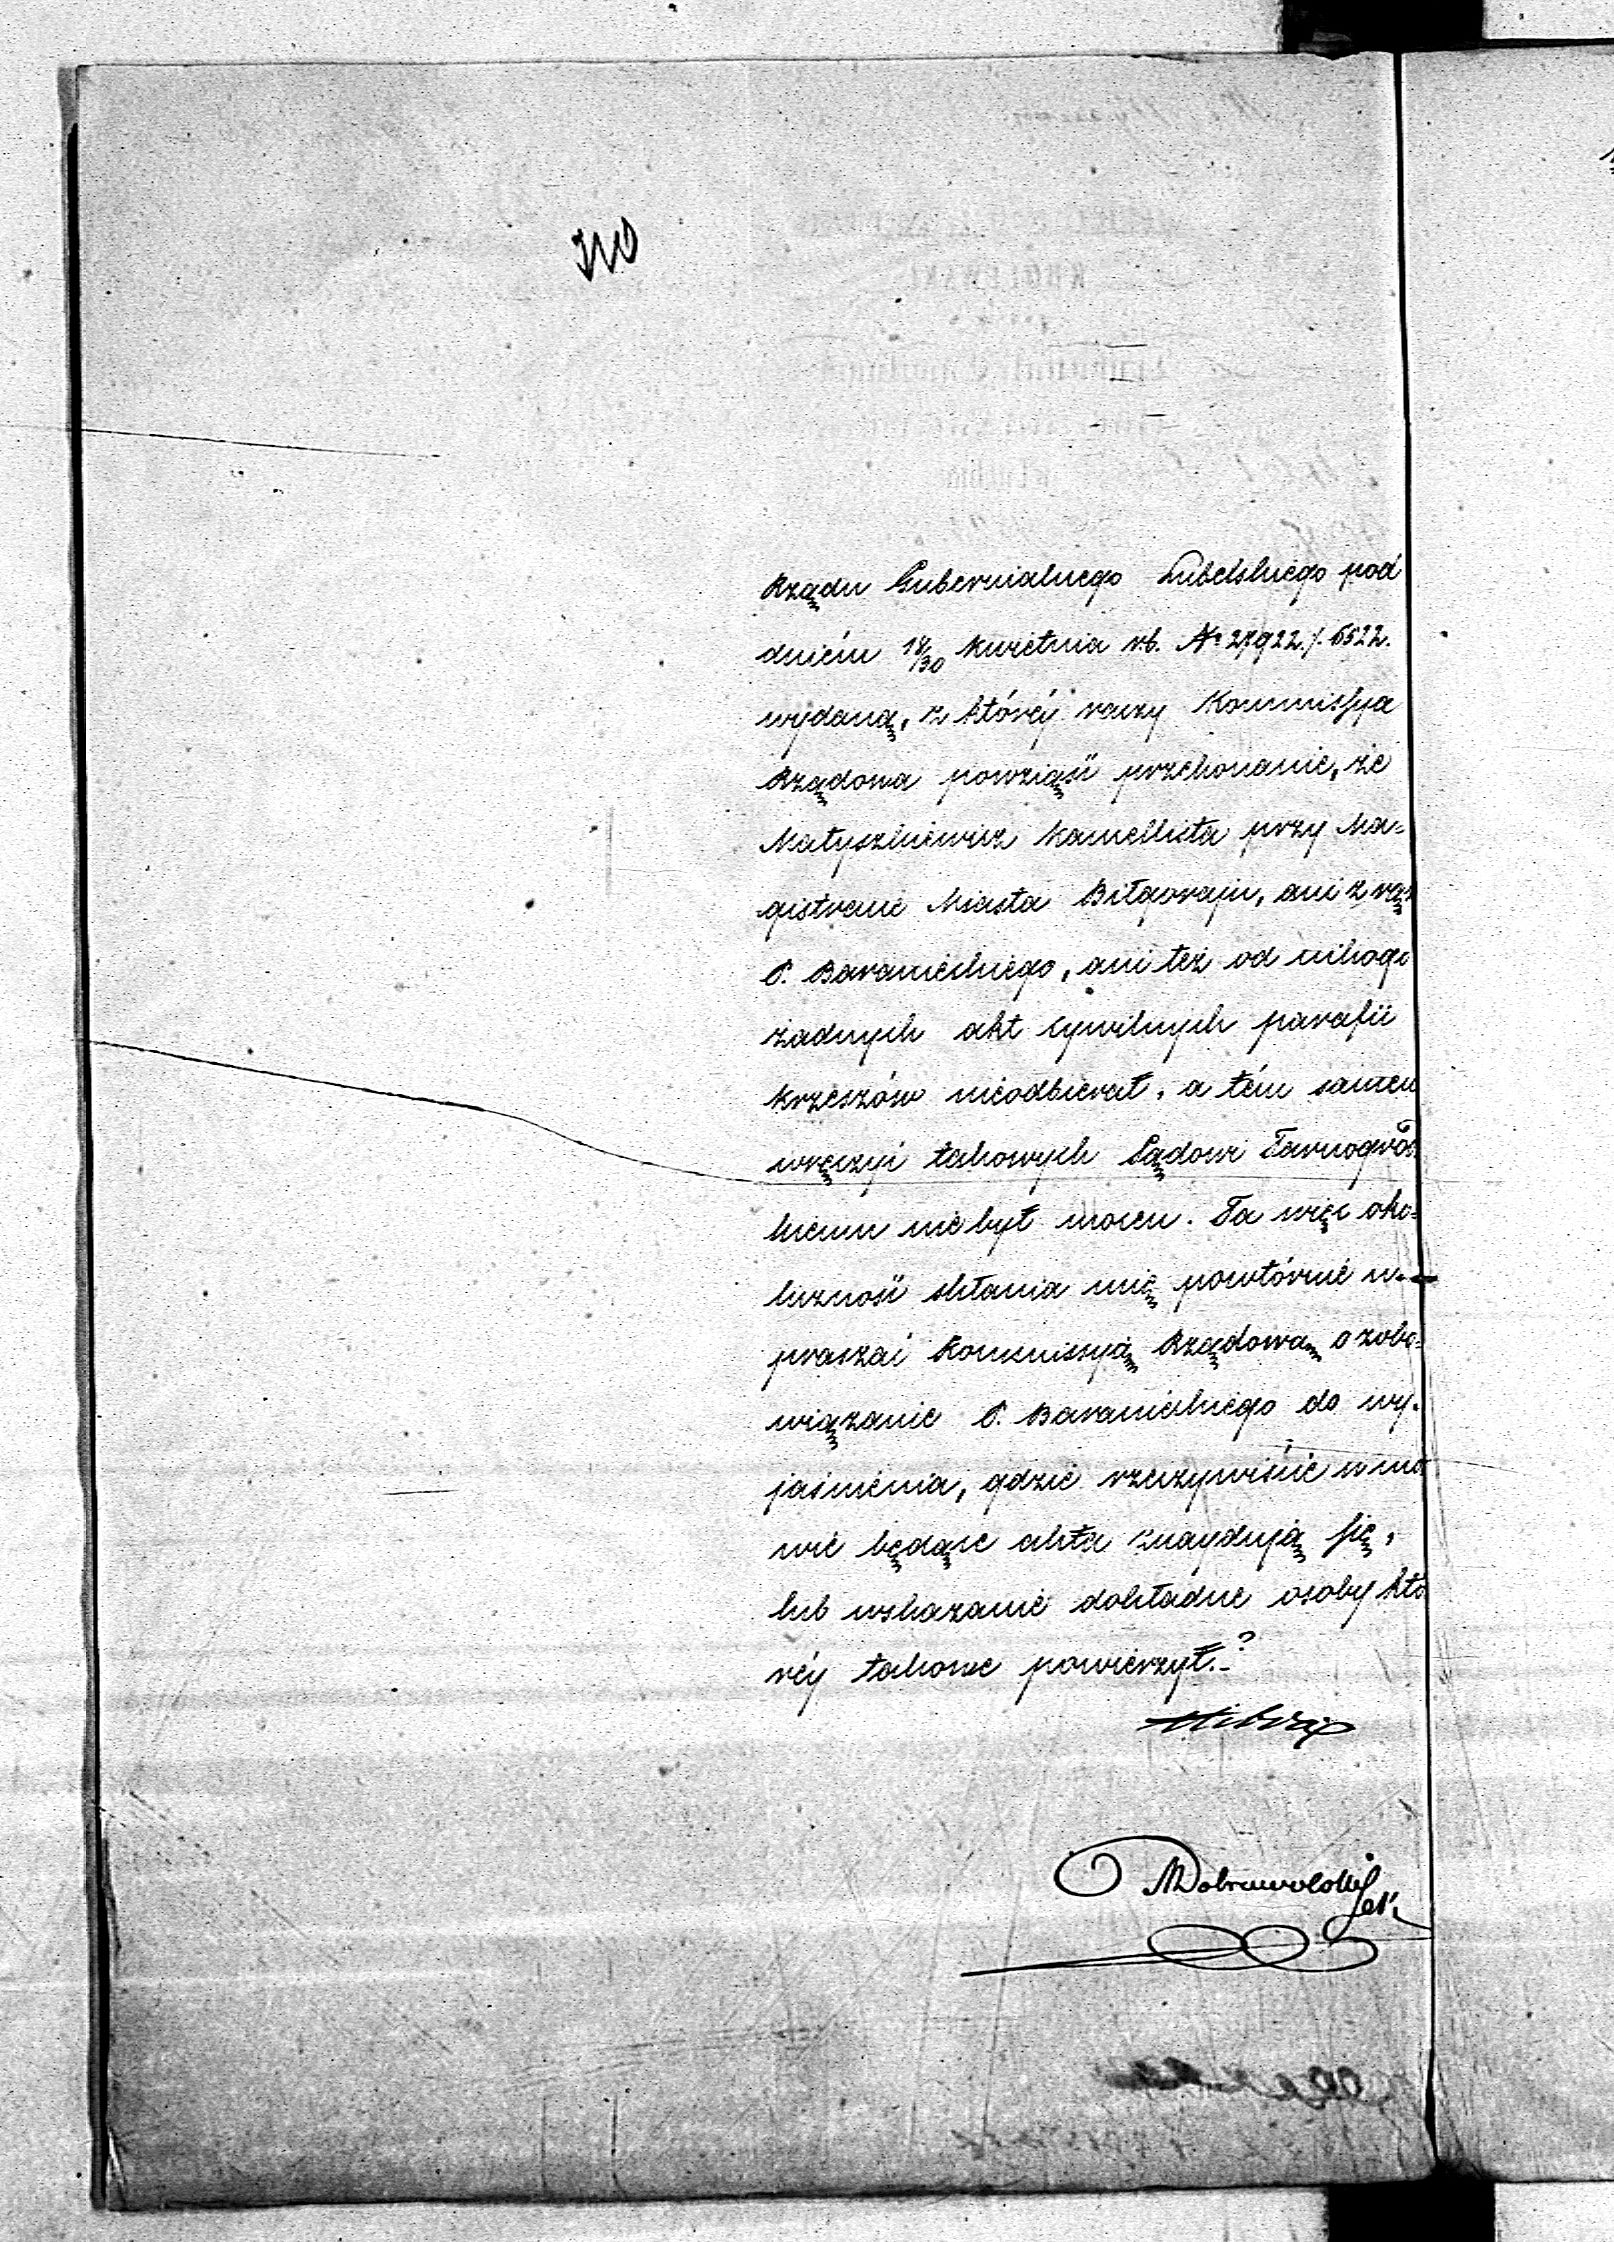 Rządu Gubernialnego Lubelskiego pod
dniem 18/30 Kwietnia r.b. Nº 27922/.6522.
wydaną, z któréj raczy Kommissya
Rządowa powziąść przekonanie, że
Matyszkiewicz Kancellista przy Ma-
gistracie Miasta Biłgoraju, ani z rąk
P. Baranieckiego, ani też od nikogo
żadnych akt cywilnych parafii
Krzeszów nieodbierał, a tém samem
wręczyć takowych Sądowi Tarnogrodz
kiemu nie był mocen. Ta więc oko-
liczność skłania mię powtórnie u-
praszać Kommissyą Rządową o zobo-
wiązanie P. Baranieckiego do wy-
jaśnienia, gdzie rzeczywiście w mo
wie będące akta znaydują się,
lub wskazanie dokładne osoby któ
réy takowe powierzył.?
Dobrowolski